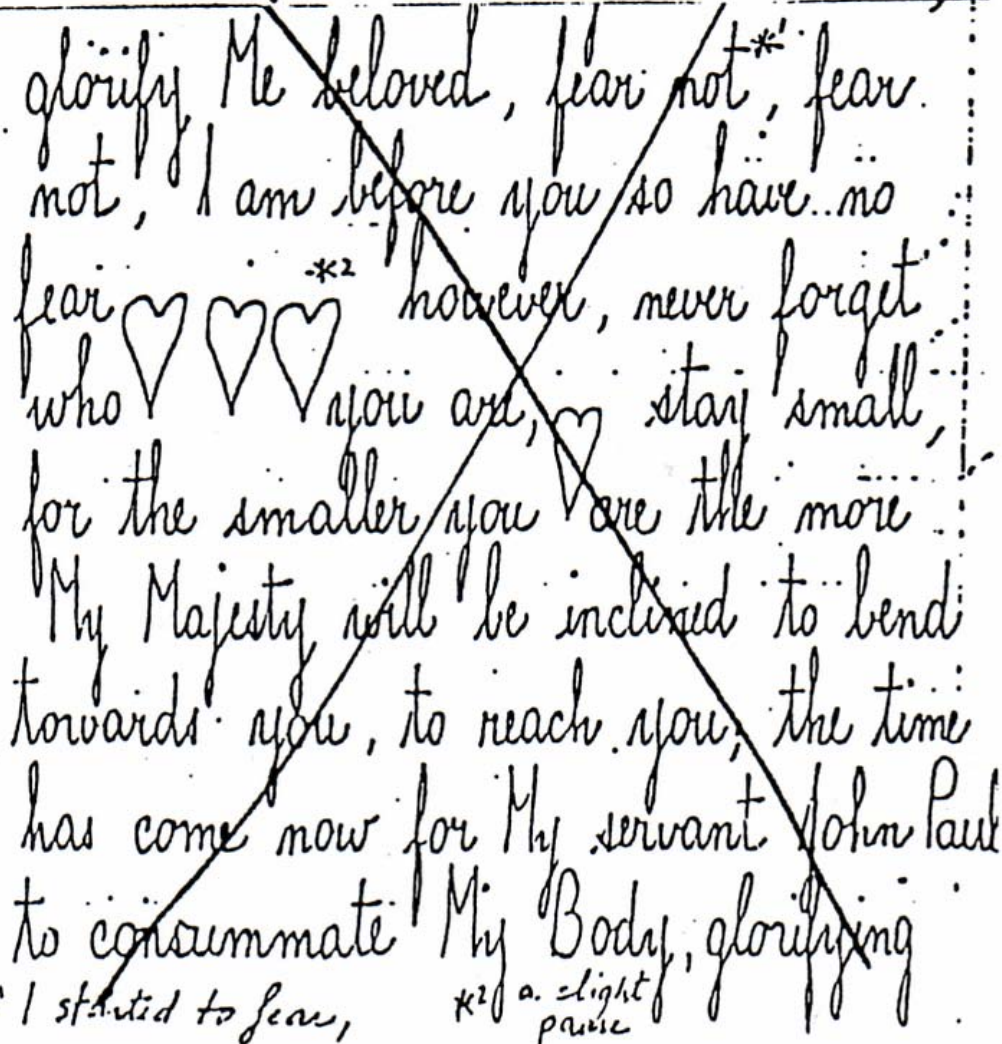 glorify Me beloved, fear not*¹, fear
not, I am before you so have no
fear ♡♡♡ *² however, never forget
who you are, ♡ stay small,
for the smaller you are the more
My Majesty will be inclined to bend
towards you, to reach you; the time
has come now for My servant John Paul
to consummate My Body, glorifying
¹ I started to fear,
*² a slight
pause